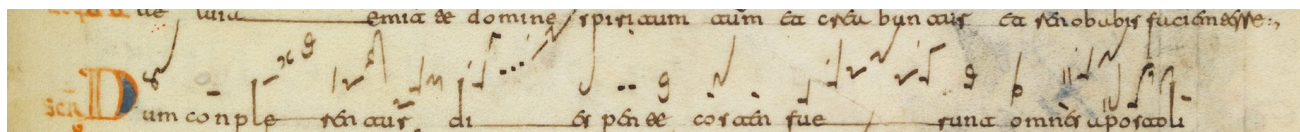 emitte domine spiritum tuum et creabuntur et renobabis faciem terre
Dum conplerentur dies pentecosten fuerunt omnes apostoli